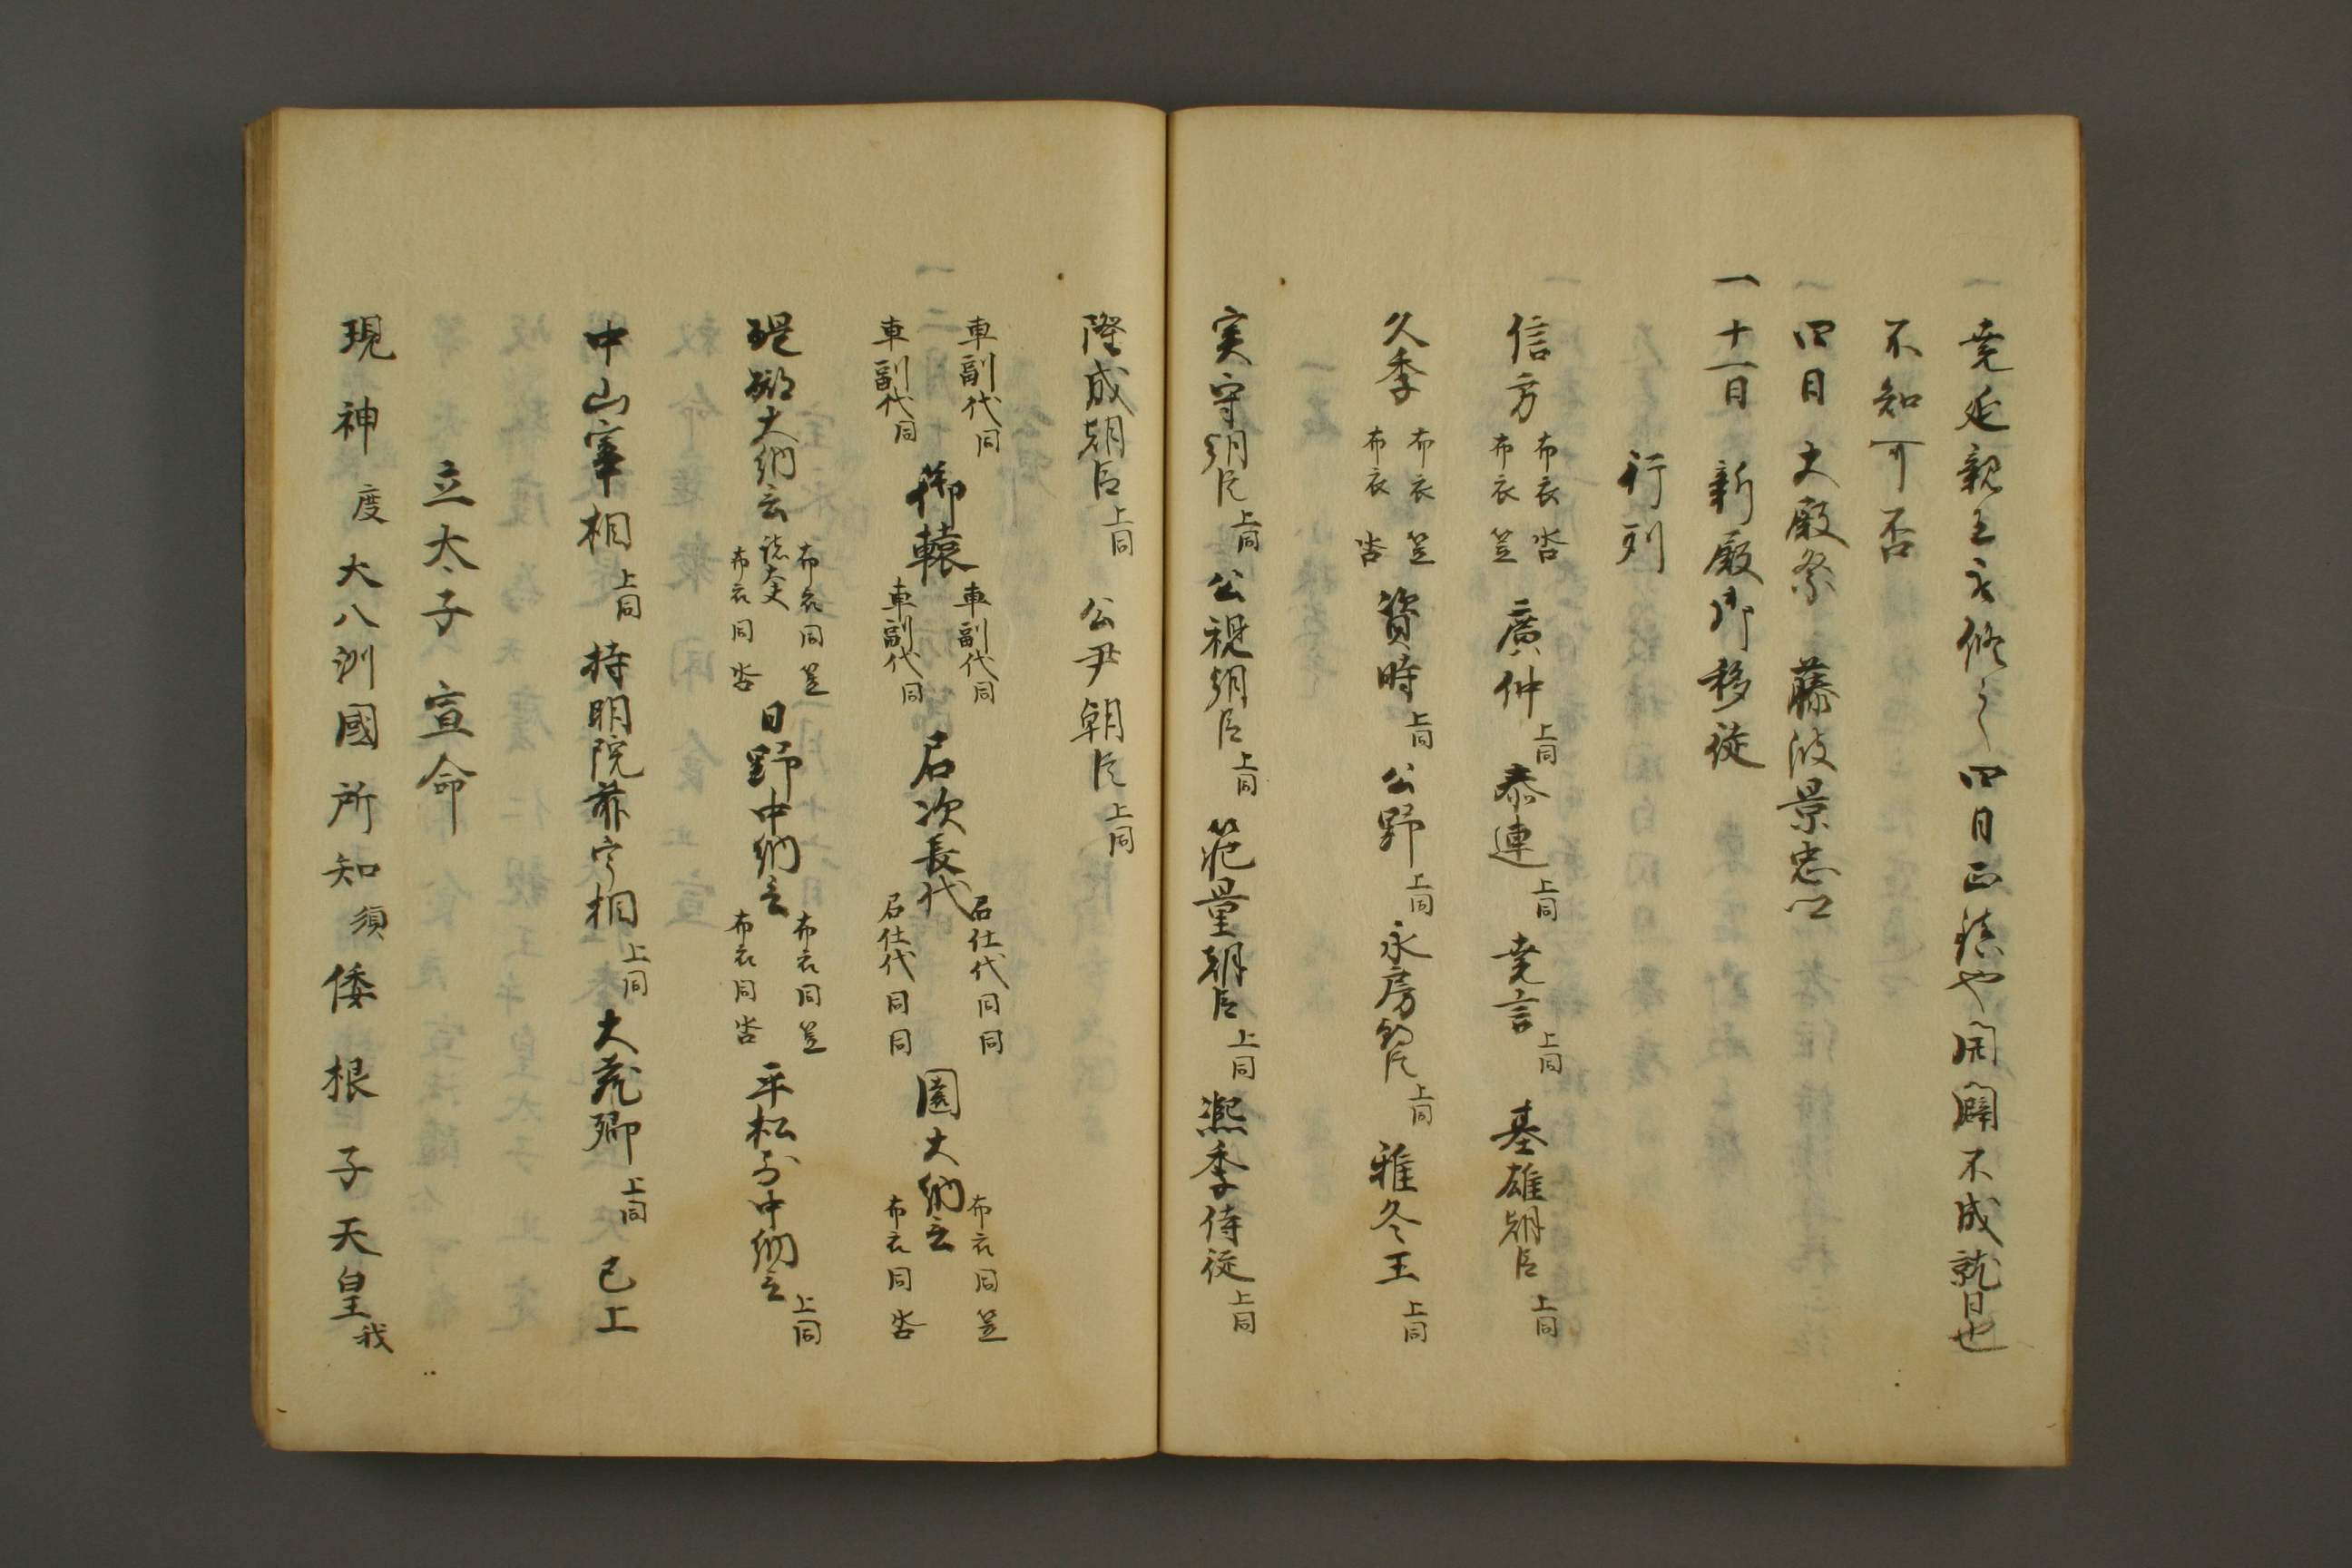 堯延親王被修之四月正鎮や開闢不成就日也
不知可否
四日大殿祭藤波景忠卿
一十一日新殿御移徙
行列
信方 布衣沓 布衣笠 廣仲上同 泰連上同 堯言上同 基雄朝臣上同
久季 布衣笠 布衣沓 資時上同 公野上同 永房朝臣上同 雅冬王上同
実守朝臣上同 公視朝臣上同 範量朝臣上同 凞季侍従上同
隆成朝臣上同 公尹朝臣上同
車副代同 車副代同 御轅 車副代同 車副代同 召次長代 召仕代同同 召仕代同同 園大納言 布衣同笠 布衣同沓
醍醐大納言 布衣同笠 布衣同沓 日野中納言 布衣同笠 布衣同沓 平松前中納言上同
中山宰相上同 持明院前宰相上同 大蔵卿上同 已上
立太子宣命
現神度大八洲國所知須倭根子天皇我